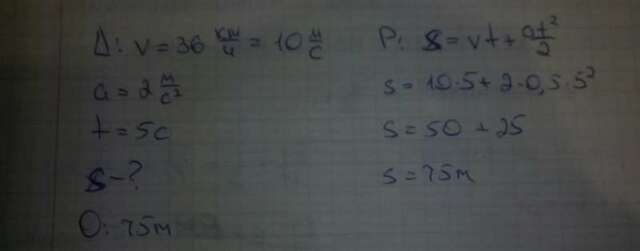 Д: v = 36 км/ч = 10 м/с
a = 2 м/с²
t = 5с
s - ?
О: 75м
Р: s = vt + at²/2
s = 10·5 + 2·0,5·5²
s = 50 + 25
s = 75м